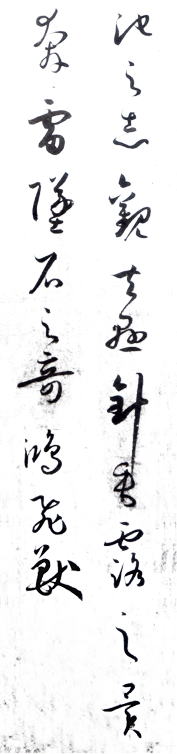 池之志觀夫懸針垂露之異
奔雷墜石之奇鴻飛獸